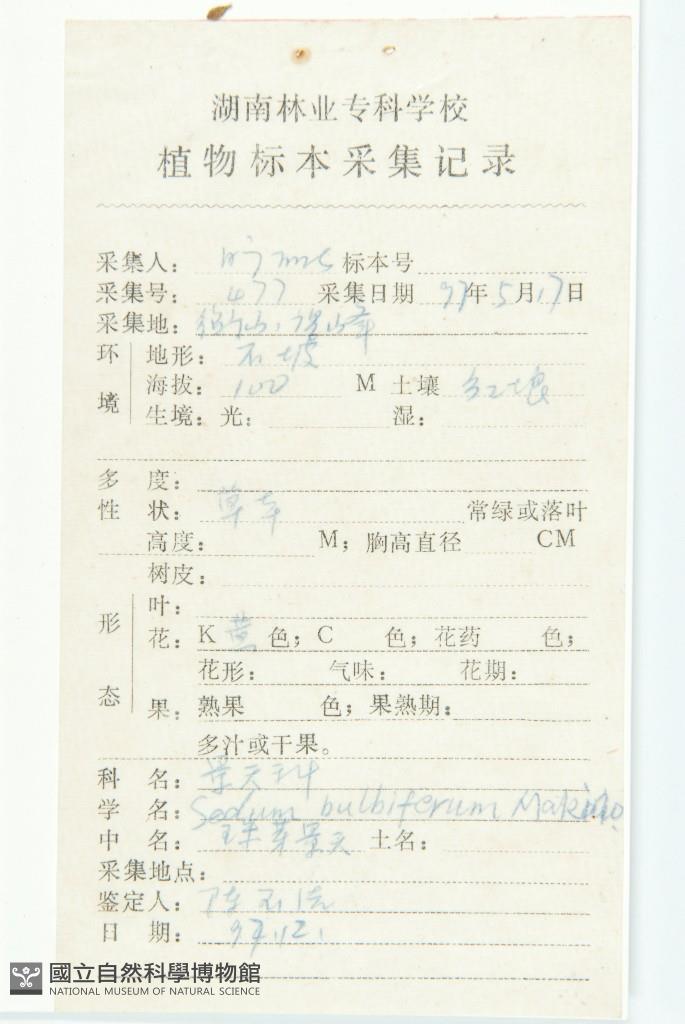 湖南林业专科学校
植物标本采集记录
采集人： 标本号
采集号： 477 采集日期 97年5月17日
采集地：
环境 地形： 石坡
海拔： 100 M 土壤 红壤
生境：光： 湿：
多度：
性状： 草本 常绿或落叶
高度： M；胸高直径 CM
形态 树皮：
叶：
花：K 黄 色；C 色；花药 色；
花形： 气味： 花期：
果：熟果 色；果熟期：
多汁或干果。
科名： 景天科
学名： Sedum bulbiferum Makino
中名： 珠芽景天 土名：
采集地点：
鉴定人：
日期： 97.12.
國立自然科學博物館
NATIONAL MUSEUM OF NATURAL SCIENCE